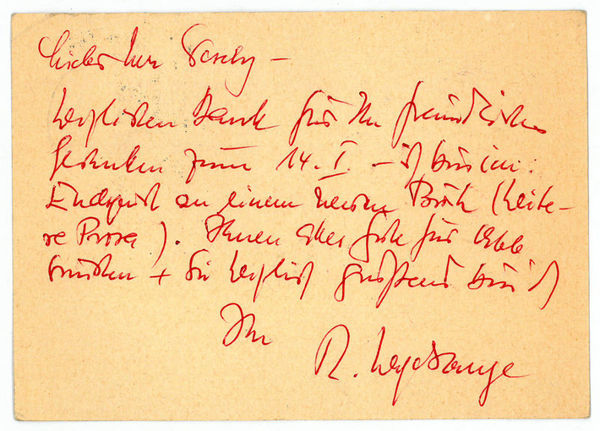 Lieber Herr
herzlichen Dank für Ihr freundliches
Gedenken zum 14. I – ich bin im
Endspurt zu einem neuen Buch (heite-
re Prosa). Ihnen alles Gute für
wünschend + Sie herzlich grüßend bin ich
Ihr
R.